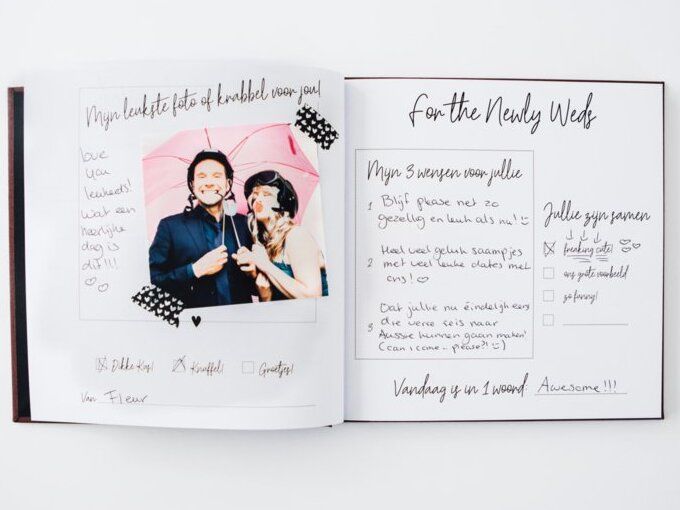 Mijn leukste foto of krabbel voor jou!
love
you
leukerds!
Wat een
heerlijke
dag is
dit!!!
Dikke Kus! Knuffel! Groetjes!
Van Fleur
For the Newly Weds
Mijn 3 wensen voor jullie
1 Blijf please net zo
gezellig en leuk als nu!
Heel veel geluk saampjes
2 met veel leuke dates met
ons!
Dat jullie nu éindelijk eens
die verre reis naar
3 Aussie kunnen gaan maken!
(can i come.. please?!)
Jullie zijn samen
freaking cute!
ons grote voorbeeld
zo funny!
Vandaag is in 1 woord: Awesome!!!